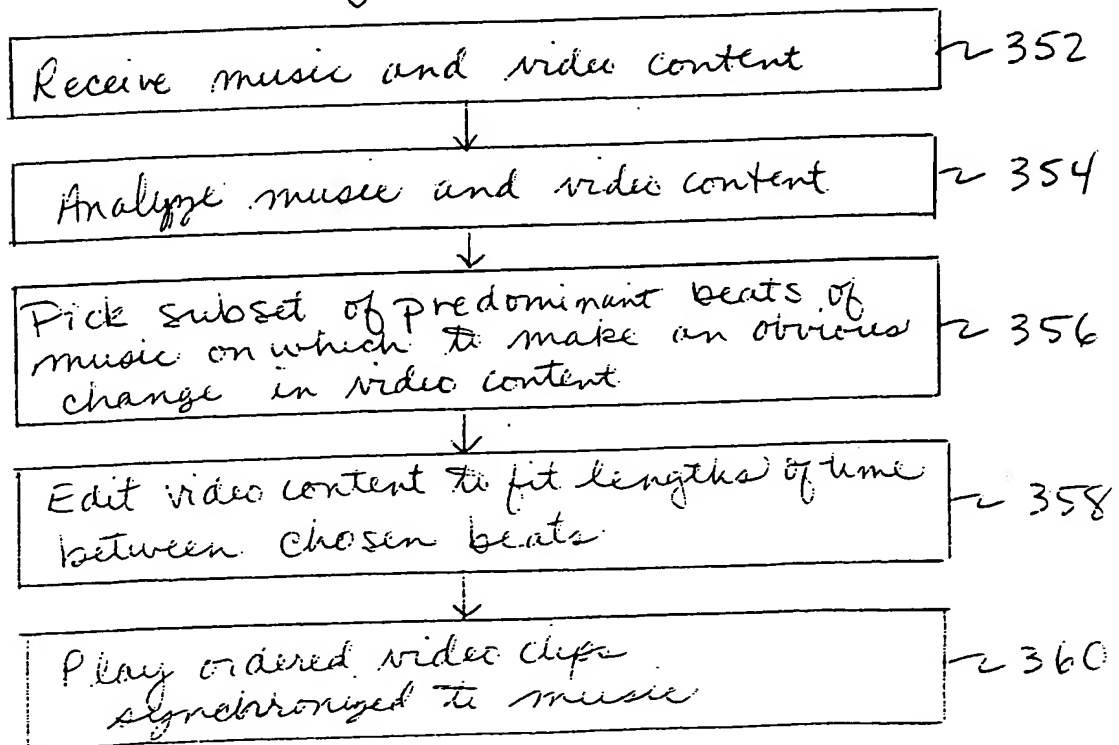 Receive music and video content
352
Analyze music and video content
354
Pick subset of predominant beats of
music on which to make an obvious
change in video content
356
Edit video content to fit lengths of time
between chosen beats
358
Play ordered video clips
synchronized to music
360